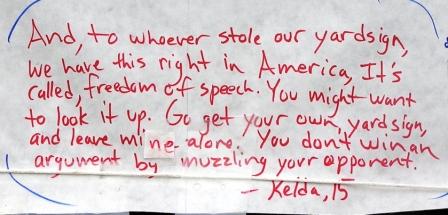 And, to whoever stole our yardsign,
we have this right in America, It's
called, freedom of speech. You might want
to look it up. Go get your own yardsign,
and leave mine alone. You don't win an
argument by muzzling your opponent.
— Kelda, 15